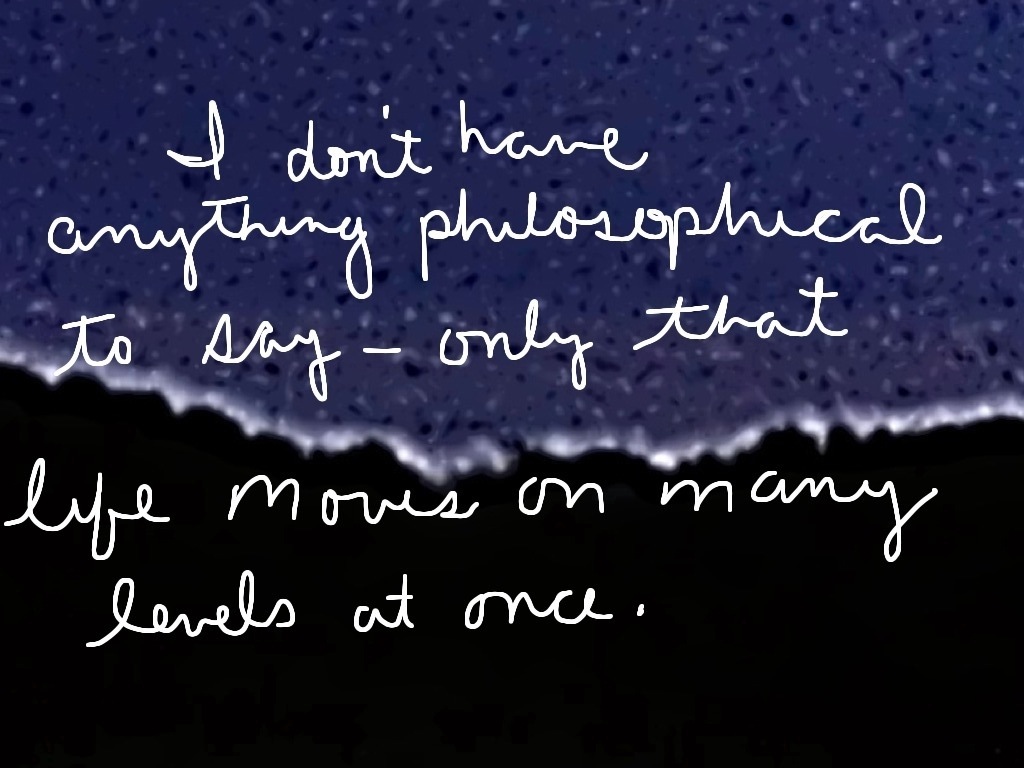 I don't have
anything philosophical
to say - only that
life moves on many
levels at once.